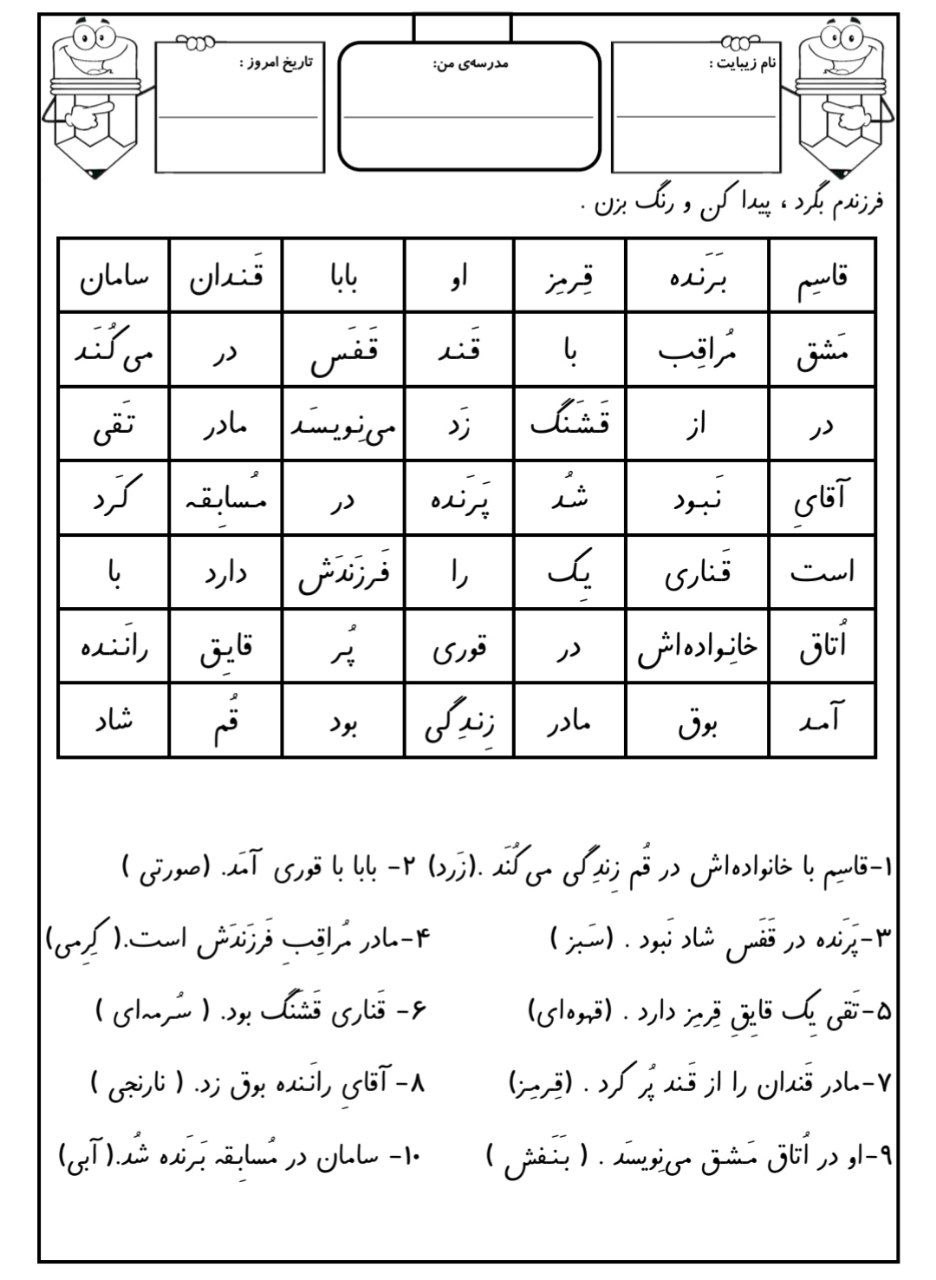 نام زیبایت : مدرسه‌ی من: تاریخ امروز :
فرزندم بگرد ، پیدا کن و رنگ بزن .
قاسِم بَرَنده قِرمِز او بابا قَندان سامان
مَشق مُراقِب با قَند قَفَس در می‌کُنَد
در از قَشَنگ زَد می‌نِویسَد مادر تَقی
آقایِ نَبود شُد پَرَنده در مُسابِقه کَرد
است قَناری یِک را فَرزَندَش دارد با
اُتاق خانِواده‌اش در قوری پُر قایِق رانَنده
آمد بوق مادر زِندِگی بود قُم شاد
۱-قاسِم با خانواده‌اش در قُم زِندِگی می‌کُنَد .(زَرد) ۲- بابا با قوری آمَد. (صورتی )
۳-پَرَنده در قَفَس شاد نَبود . (سَبز ) ۴-مادر مُراقِبِ فَرزَندَش است.( کِرِمی)
۵-تَقی یِک قایِقِ قِرمِز دارد . (قهوه‌ای) ۶- قَناری قَشَنگ بود. ( سُرمه‌ای )
۷-مادر قَندان را از قَند پُر کَرد . (قِرمِز) ۸- آقایِ رانَنده بوق زد. ( نارنجی )
۹-او در اُتاق مَشق می‌نِویسَد . ( بَنَفش ) ۱۰- سامان در مُسابِقه بَرَنده شُد.( آبی)